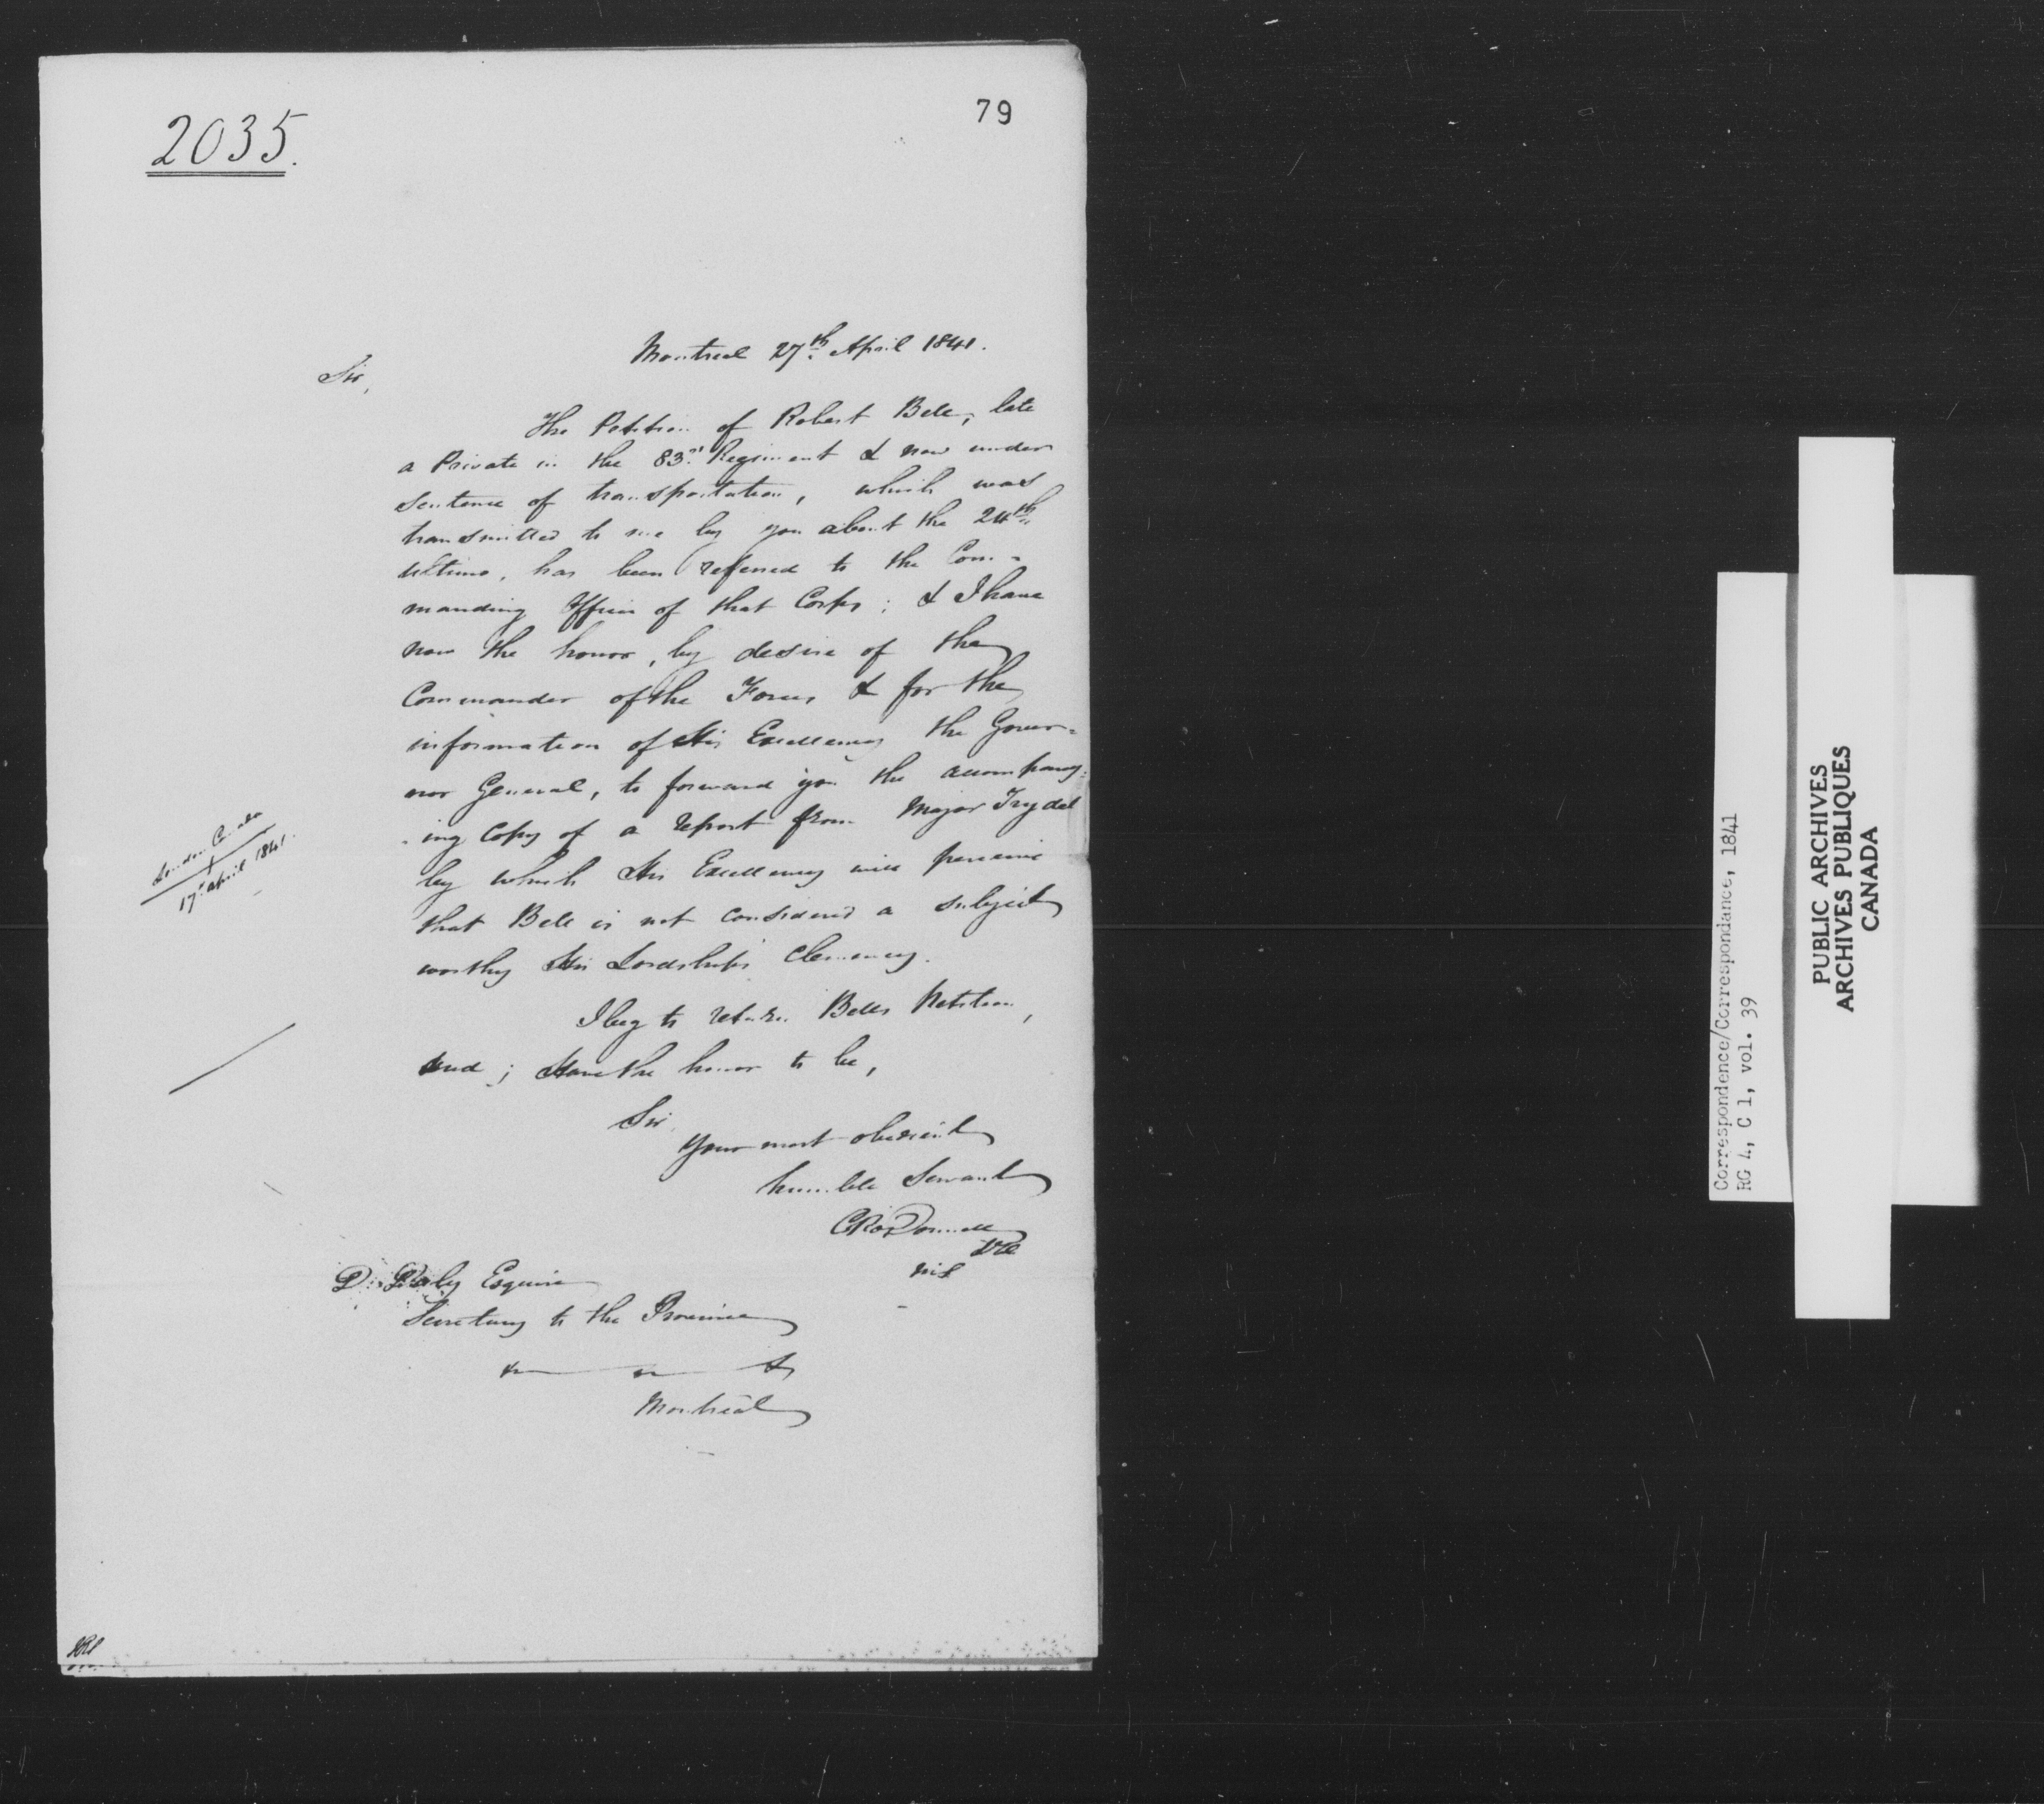 79
2035.
Montreal 27th April 1841.
Sir,
The Petition of Robert Bell, late
a Private in the 83rd Regiment & now under
sentence of transportation, which was
transmitted to me by you about the 24th
Ultimo, has been referred to the Com-
manding Officer of that Corps; & I have
now the honor, by desire of the
Commander of the Forces & for the
information of His Excellency the Gover-
nor General, to forward you the accompany-
-ing Copy of a report from Major Trydel
by which His Excellency will perceive
that Bell is not considered a subject
worthy His Lordship's Clemency.
London Canada
17 April 1841.
I beg to return Bells Petition,
and; Have the honor to be,
Sir,
Your most obedient
humble Servant
C R O'Donnell
D. Daly Esquire
Secretary to the Province
Montreal
Correspondence/Correspondance, 1841
RG 4, C 1, vol. 39
PUBLIC ARCHIVES
ARCHIVES PUBLIQUES
CANADA